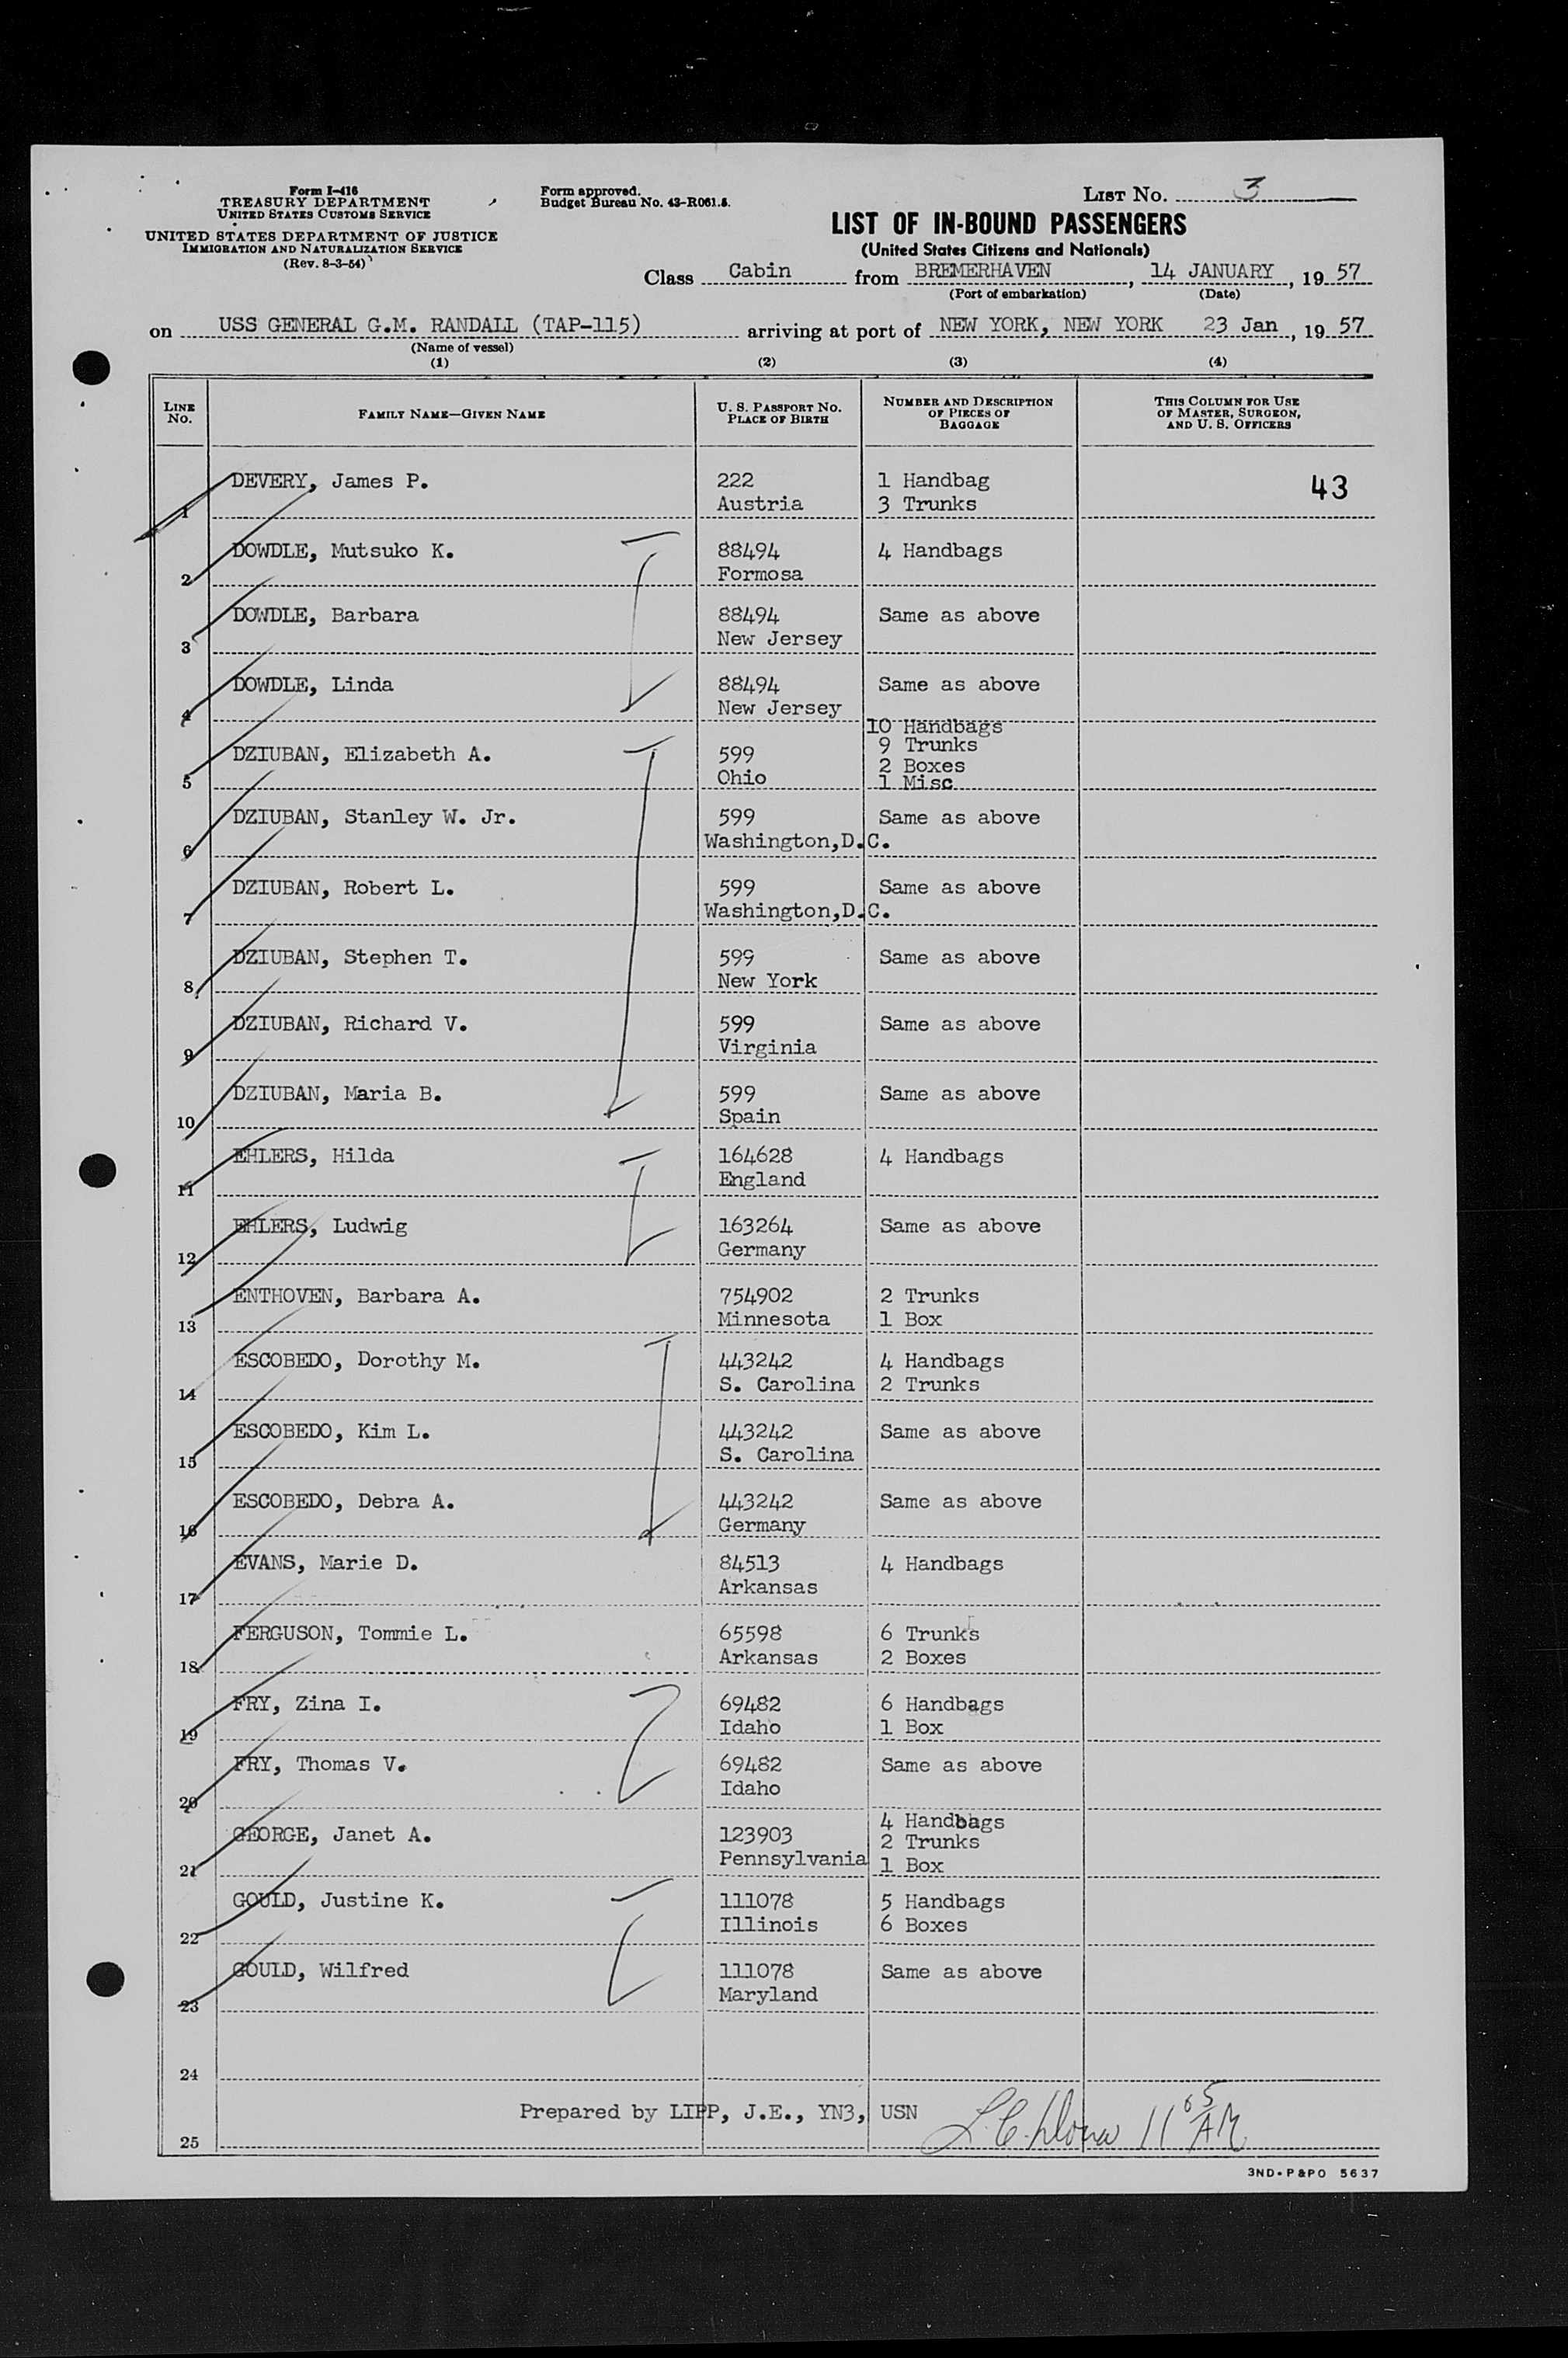 Form I-416
TREASURY DEPARTMENT
UNITED STATES CUSTOMS SERVICE
UNITED STATES DEPARTMENT OF JUSTICE
IMMIGRATION AND NATURALIZATION SERVICE
(Rev. 8-3-54)
Form approved.
Budget Bureau No. 43-R061.5.
LIST No. 3
LIST OF IN-BOUND PASSENGERS
(United States Citizens and Nationals)
Class Cabin from BREMERHAVEN, 14 JANUARY, 19 57
(Port of embarkation) (Date)
on USS GENERAL G.M. RANDALL (TAP-115) arriving at port of NEW YORK, NEW YORK 23 Jan, 19 57
(Name of vessel)
(1) (2) (3) (4)
LINE No. FAMILY NAME—GIVEN NAME U. S. PASSPORT No. PLACE OF BIRTH NUMBER AND DESCRIPTION OF PIECES OF BAGGAGE THIS COLUMN FOR USE OF MASTER, SURGEON, AND U. S. OFFICERS
1 DEVERY, James P. 222 1 Handbag 43
Austria 3 Trunks
2 DOWDLE, Mutsuko K. 88494 4 Handbags
Formosa
3 DOWDLE, Barbara 88494 Same as above
New Jersey
4 DOWDLE, Linda 88494 Same as above
New Jersey
10 Handbags
9 Trunks
5 DZIUBAN, Elizabeth A. 599 2 Boxes
Ohio 1 Misc
6 DZIUBAN, Stanley W. Jr. 599 Same as above
Washington,D.C.
7 DZIUBAN, Robert L. 599 Same as above
Washington,D.C.
8 DZIUBAN, Stephen T. 599 Same as above
New York
9 DZIUBAN, Richard V. 599 Same as above
Virginia
10 DZIUBAN, Maria B. 599 Same as above
Spain
11 EHLERS, Hilda 164628 4 Handbags
England
12 EHLERS, Ludwig 163264 Same as above
Germany
13 ENTHOVEN, Barbara A. 754902 2 Trunks
Minnesota 1 Box
14 ESCOBEDO, Dorothy M. 443242 4 Handbags
S. Carolina 2 Trunks
15 ESCOBEDO, Kim L. 443242 Same as above
S. Carolina
16 ESCOBEDO, Debra A. 443242 Same as above
Germany
17 EVANS, Marie D. 84513 4 Handbags
Arkansas
18 FERGUSON, Tommie L. 65598 6 Trunks
Arkansas 2 Boxes
19 FRY, Zina I. 69482 6 Handbags
Idaho 1 Box
20 FRY, Thomas V. 69482 Same as above
Idaho
4 Handbags
21 GEORGE, Janet A. 123903 2 Trunks
Pennsylvania 1 Box
22 GOULD, Justine K. 111078 5 Handbags
Illinois 6 Boxes
23 GOULD, Wilfred 111078 Same as above
Maryland
24
Prepared by LIPP, J.E., YN3, USN 11 05 AM
25
3ND-P&PO 5637